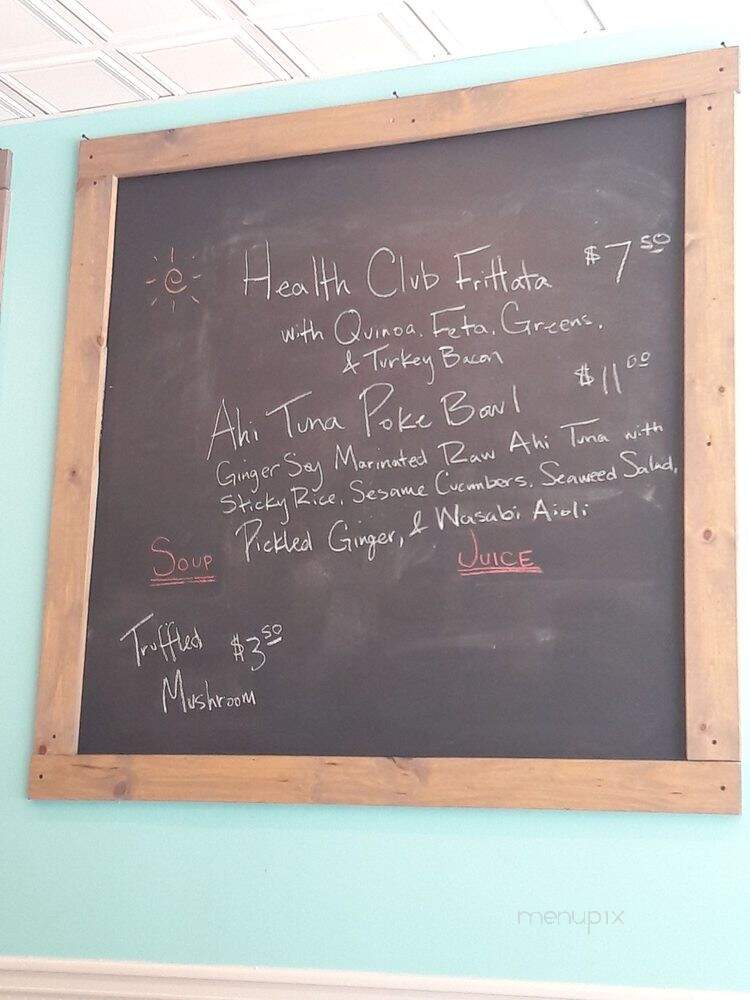 Health Club Frittata $7 50
with Quinoa, Feta, Greens,
& Turkey Bacon
Ahi Tuna Poke Bowl $11 00
Ginger Soy Marinated Raw Ahi Tuna with
Sticky Rice, Sesame Cucumbers, Seaweed Salad,
Pickled Ginger, & Wasabi Aioli
SOUP
JUICE
Truffled $3 50
Mushroom
menupix